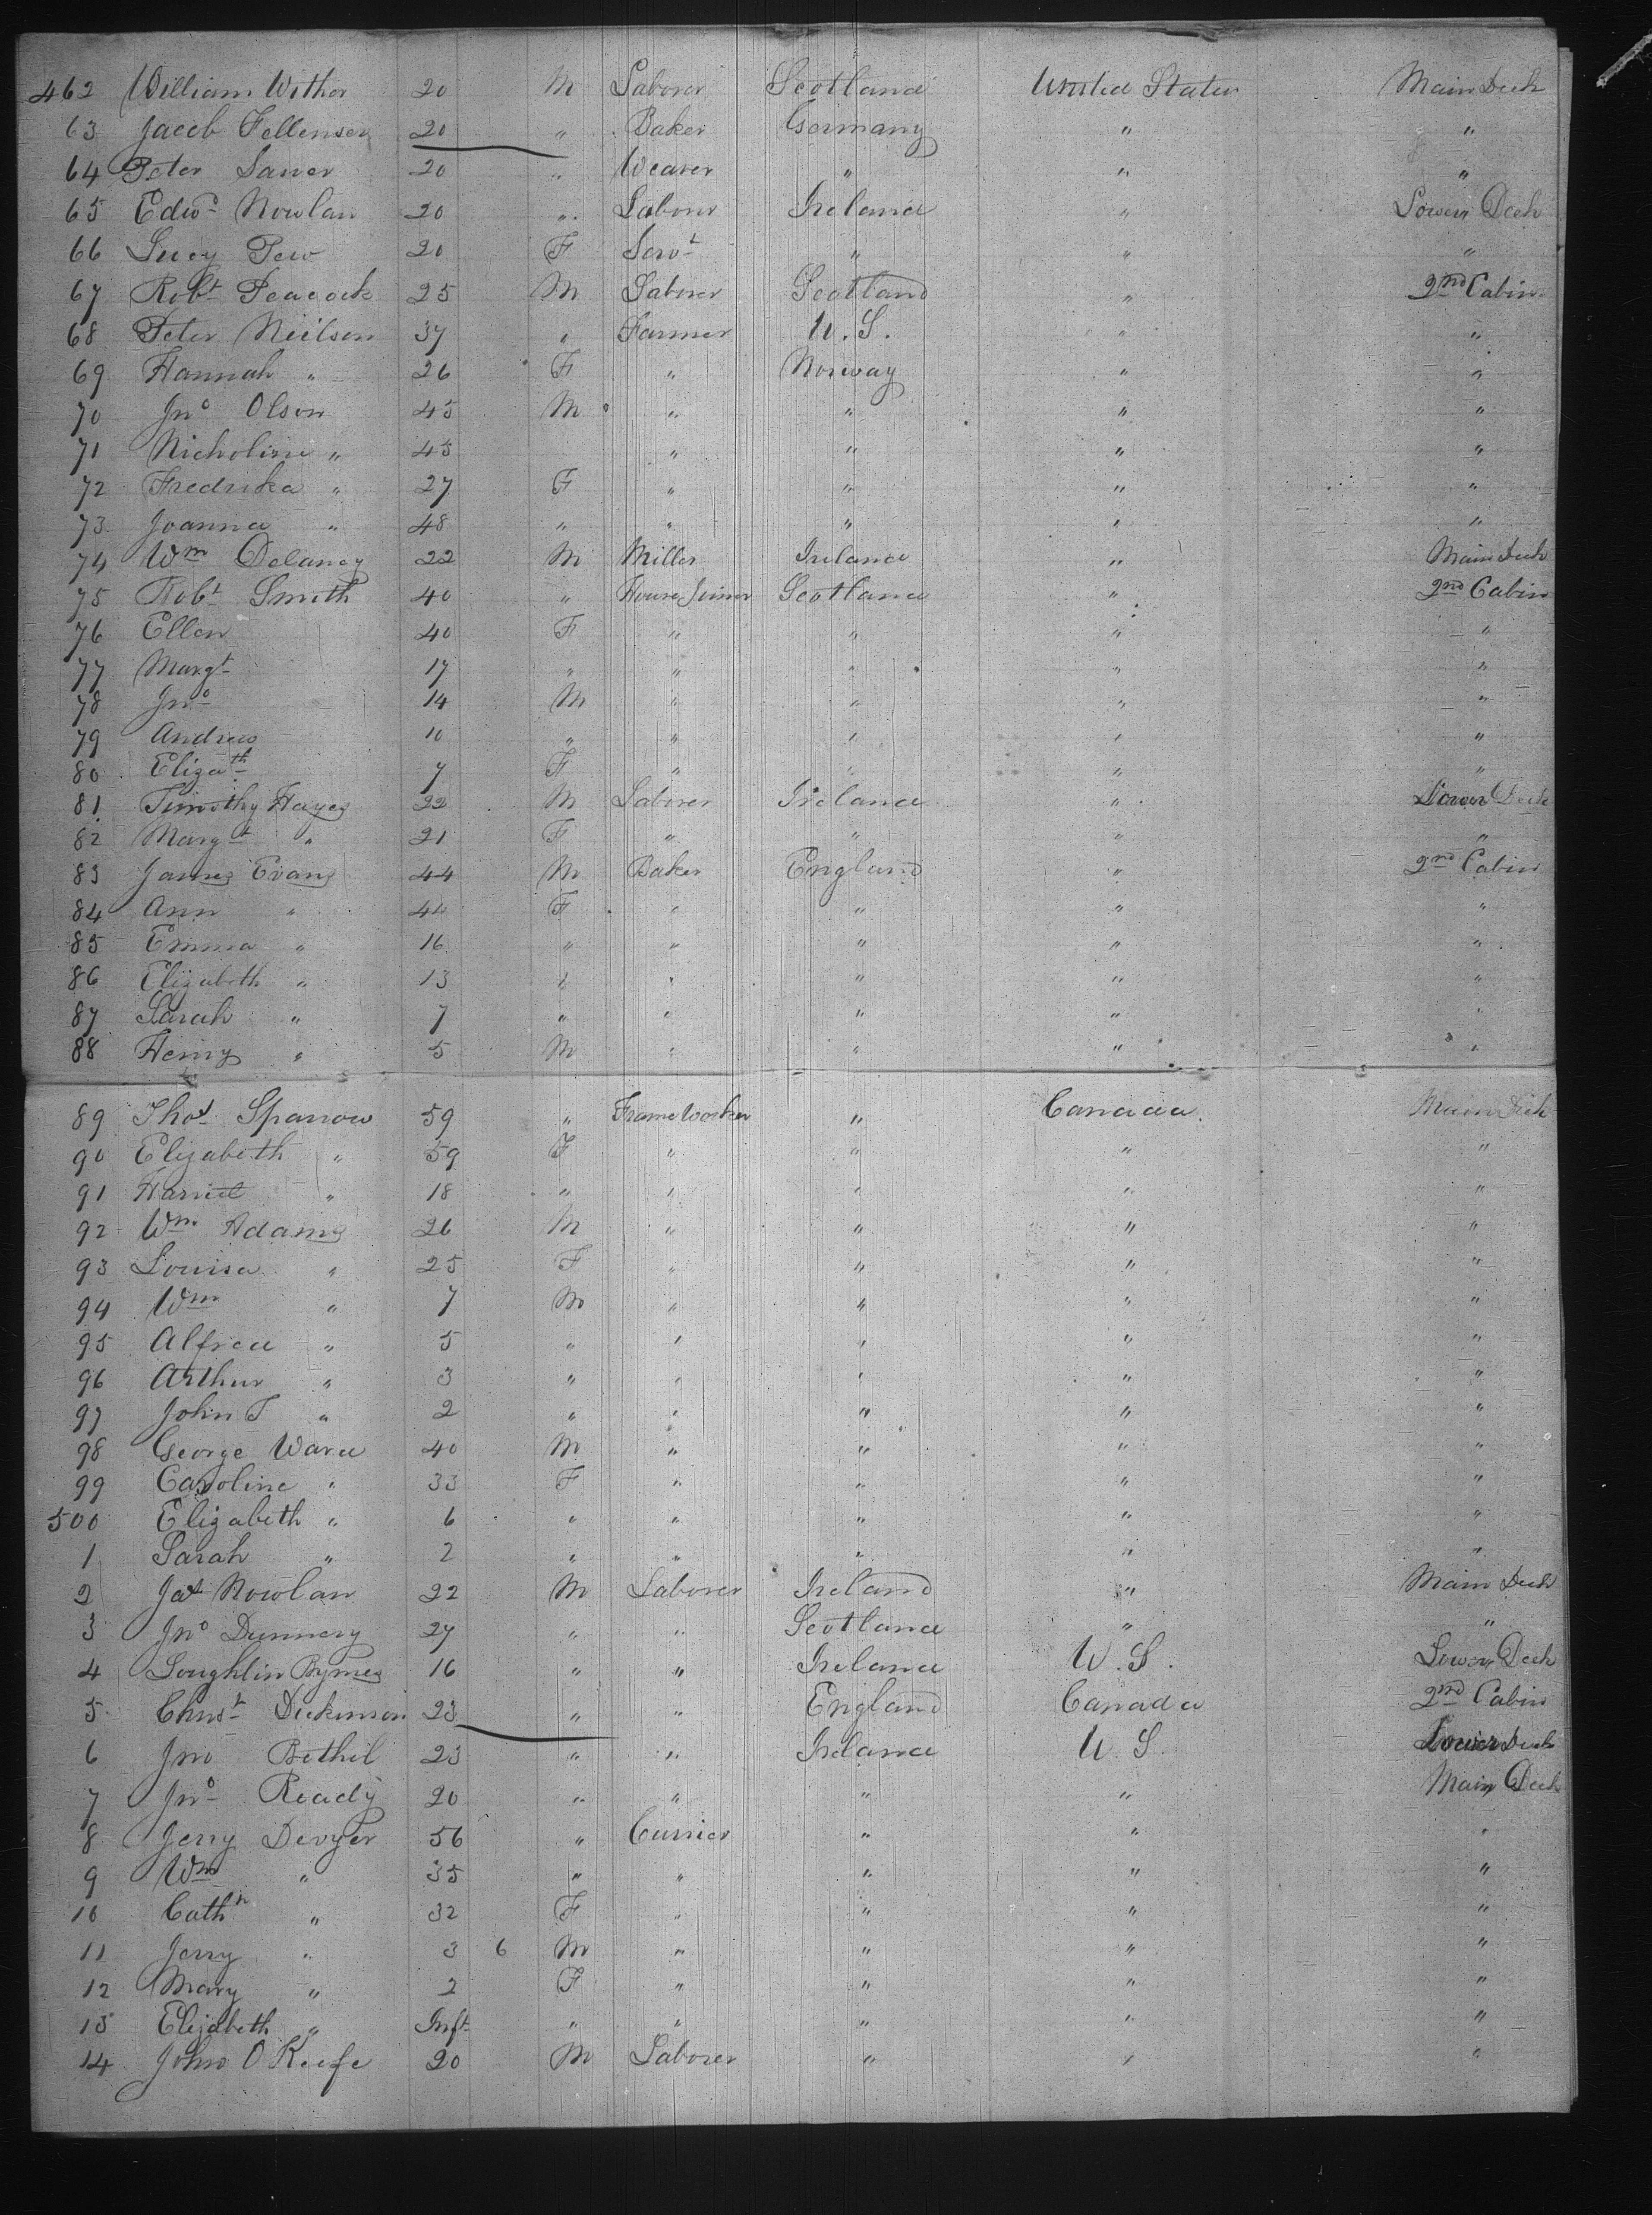 462 William Wither 20 M Laborer Scotland United States Main Deck
63 Jacob Fellensen 20 " Baker Germany " "
64 Peter Saner 20 " Weaver " " "
65 Edwd Nowlan 20 " Laborer Ireland " Lower Deck
66 Lucy Pew 20 F Servt " " "
67 Robt Peacock 25 M Laborer Scotland " 2nd Cabin
68 Peter Neilson 37 " Farmer U.S. " "
69 Hannah " 26 F " Norway " "
70 Jno Olson 45 M " " " "
71 Nicholine " 45 " " " "
72 Fredrika " 27 F " " " "
73 Joanna " 48 " " " " "
74 Wm Delaney 22 M Miller Ireland " Main Deck
75 Robt Smith 40 " House Joiner Scotland " 2nd Cabin
76 Ellen 40 F " " " "
77 Margt 17 " " " " "
78 Jno 14 M " " " "
79 Andrew 10 " " " " "
80 Elizath 7 F " " " "
81 Timothy Hayes 22 M Laborer Ireland " Lower Deck
82 Margt " 21 F " " " "
83 James Evans 44 M Baker England " 2nd Cabin
84 Ann " 44 F " " " "
85 Emma " 16 " " " " "
86 Elizabeth " 13 " " " " "
87 Sarah " 7 " " " " "
88 Henry " 5 M " " " "
89 Thos Sparrow 59 " Frame Worker " Canada Main Deck
90 Elizabeth " 59 F " " " "
91 Harriet " 18 " " " " "
92 Wm Adams 26 M " " " "
93 Louisa " 25 F " " " "
94 Wm " 7 M " " " "
95 Alfred " 5 " " " " "
96 Arthur " 3 " " " " "
97 John T " 2 " " " " "
98 George Ward 40 M " " " "
99 Caroline " 33 F " " " "
500 Elizabeth " 6 " " " " "
1 Sarah " 2 " " " " "
2 Jas Nowlan 22 M Laborer Ireland " Main Deck
3 Jno Dunnery 27 " " Scotland " "
4 Loughlin Byrnes 16 " " Ireland U.S. Lower Deck
5 Christ Dickinson 23 " " England Canada 2nd Cabin
6 Jno Bethil 23 " " Ireland U S Lower Deck
7 Jno Ready 20 " " " " Main Deck
8 Jerry Devyer 56 " Currier " " "
9 Wm " 35 " " " " "
10 Cathn " 32 F " " " "
11 Jerry " 3 6 M " " " "
12 Mary " 2 F " " " "
13 Elizabeth " Inft " " " " "
14 John O Keefe 20 M Laborer " " "